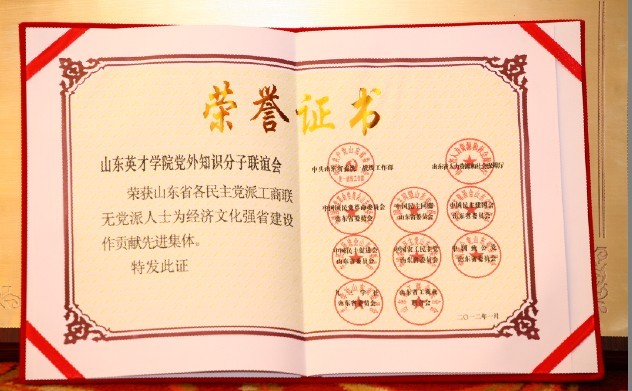 荣誉证书
山东英才学院党外知识分子联谊会
荣获山东省各民主党派工商联
无党派人士为经济文化强省建设
作贡献先进集体。
特发此证
中共山东省委统一战线工作部
山东省人力资源和社会保障厅
中国国民党革命委员会
山东省委员会
中国民主同盟
山东省委员会
中国民主建国会
山东省委员会
中国民主促进会
山东省委员会
中国农工民主党
山东省委员会
中国致公党
山东省委员会
九三学社
山东省委员会
山东省工商业
联合会
二〇一二年一月